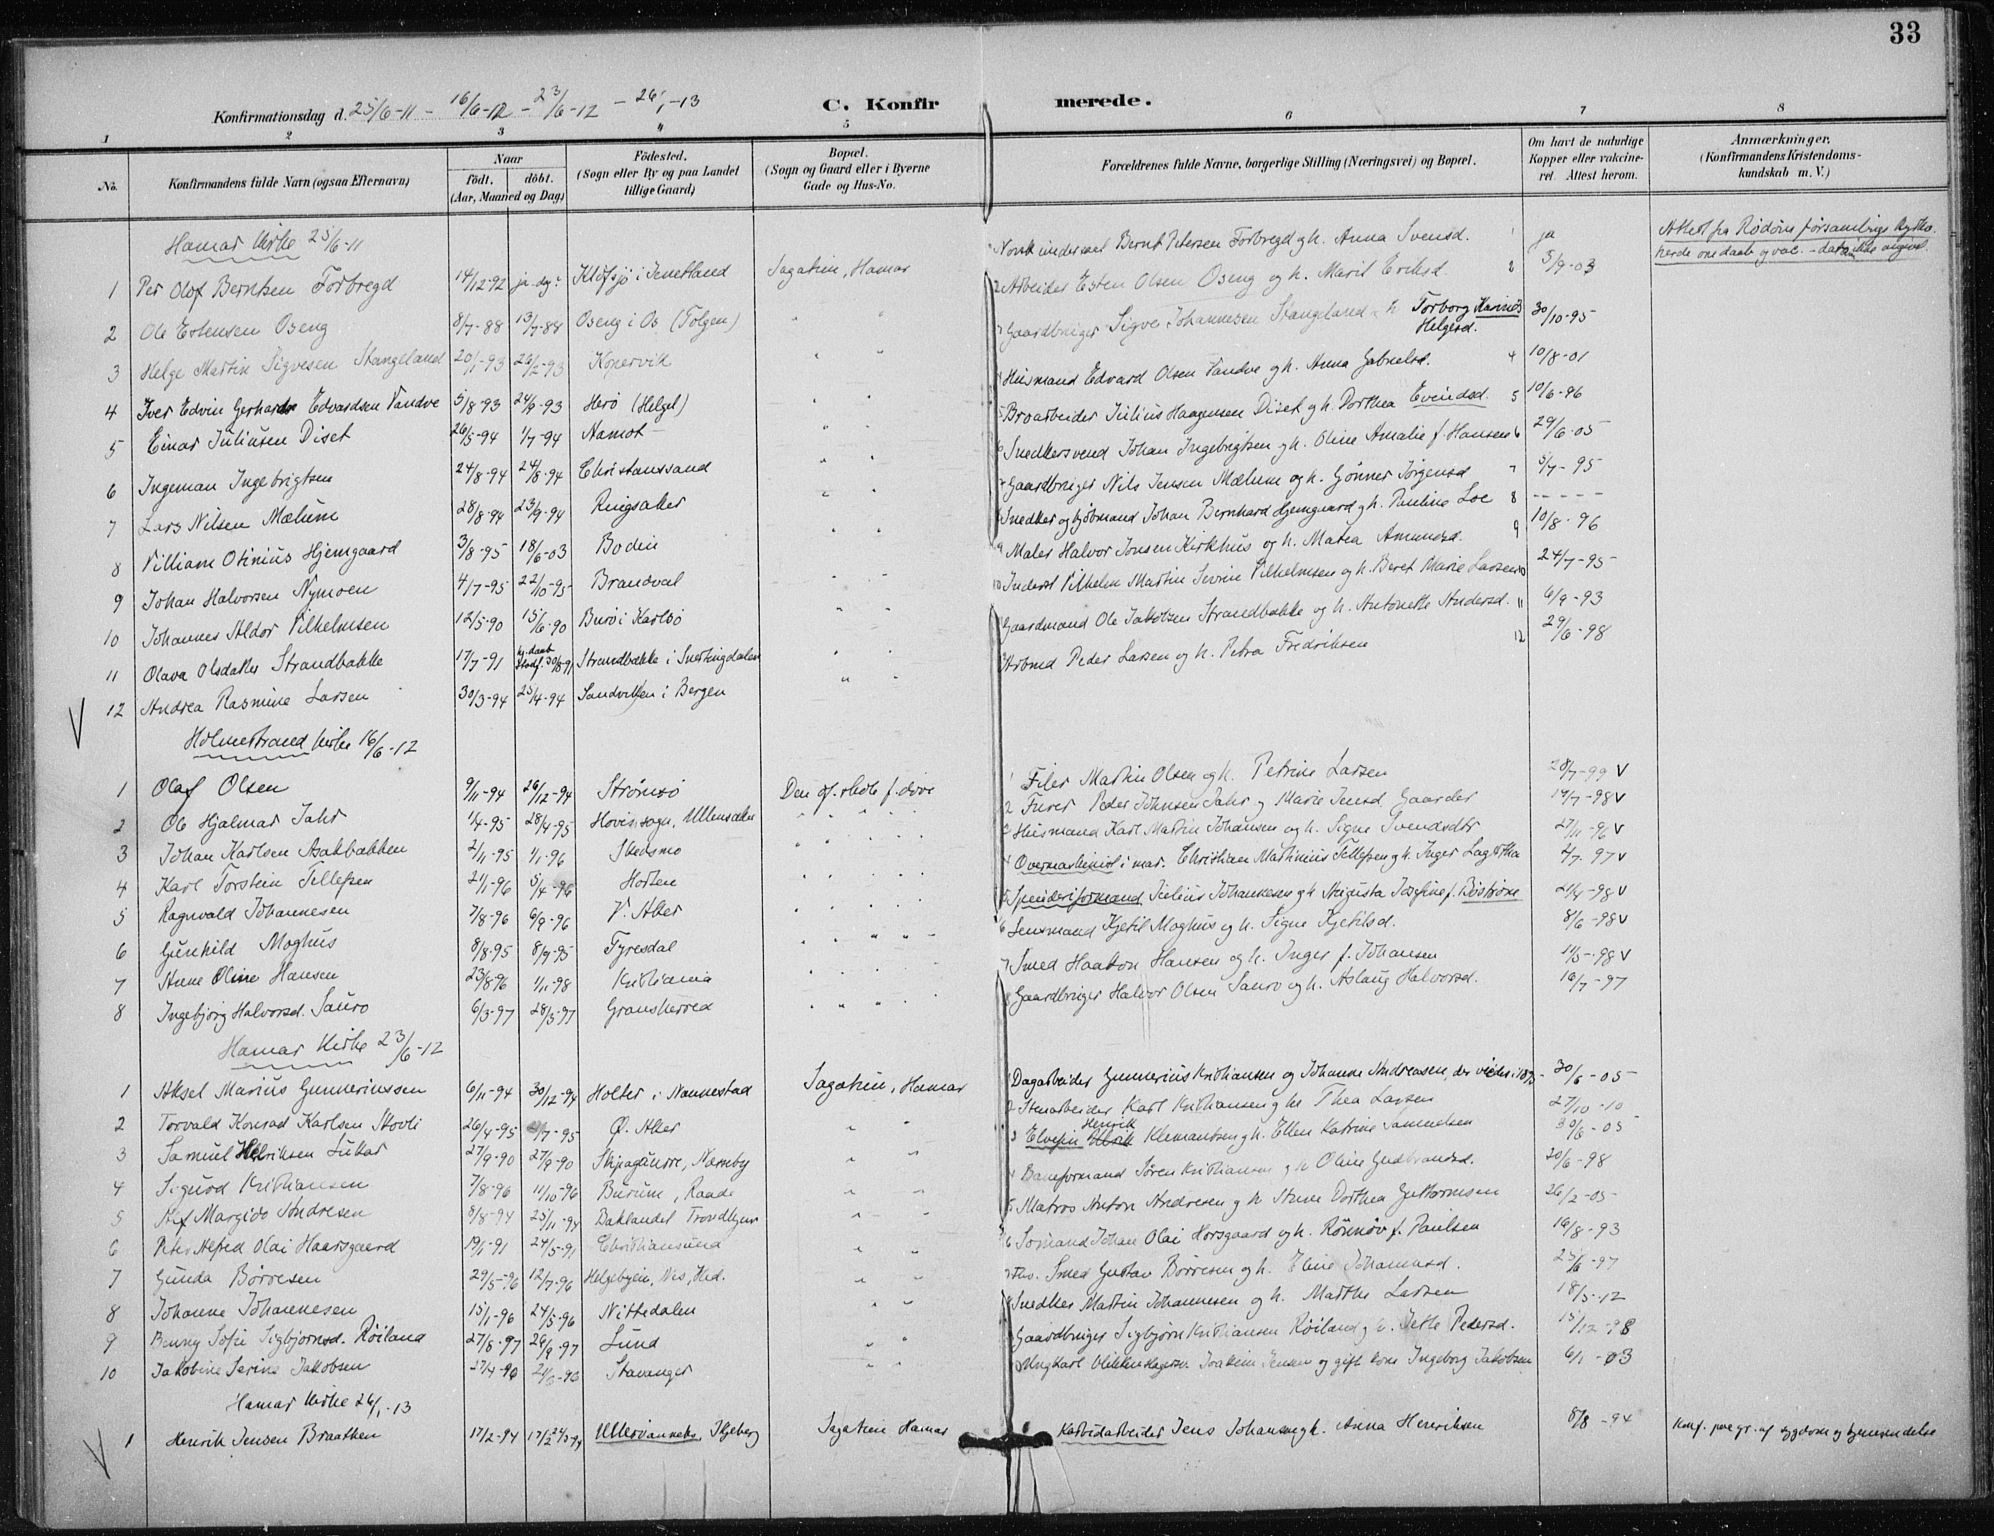 33
Konfirmationsdag d. 25/6-11 - 16/6-12 - 23/6-12 - 26/1-13 C. Konfirmerede.
1 2 3 4 5 6 7 8
No. Konfirmandens fulde Navn (ogsaa Efternavn) Naar födt. döbt. (Aar, Maaned og Dag) Födested. (Sogn eller By og paa Landet tillige Gaard) Bopæl. (Sogn og Gaard eller i Byerne Gade og Hus-No. Forældrenes fulde Navne, borgerlige Stilling (Næringsvei) og Bopæl. Om havt de naturlige Kopper eller vaccineret. Attest herom. Anmærkninger. (Konfirmandens Kristendomskundskab m. V.)
Hamar Kirke 25/6-11
1 Per Olof Berntsen Forbregd 14/12-92 Klöfsjö i Jemtland Sagatun, Hamar Bernt Petersen Forbregd og h. Anna Svensd. ja Attest fra Rödöns
2 Ole Estensen Oseng 8/7-88 13/7-88 Oseng i Os (Tolgen) " " 2 Arbeider Esten Olsen Oseng og h. Marit Eriksd. 2 5/9-03
3 Helge Martin Sigvesen Stangeland 20/1-93 26/2-93 Kopervik " " Gaardbruger Sigve Johannesen Stangeland h Torborg Karine Helgesd. 30/10-95
4 Iver Edvin Gerhard Edvardsen Vandve 5/8-93 24/9-93 Herö (Helgel) " " Husmand Edvard Olsen Vandve og h. Anna Gabrielsd. 4 10/8-01
5 Einar Juliusen Diset 26/5-94 1/7-94 Aamot " " 5 Broarbeider Julius Haagensen Diset og h. Dorthea Evindsd. 5 10/6-96
6 Ingeman Ingebrigtsen 24/8-94 24/8-94 Christianssand " " 6 Snedkersvend Johan Ingebrigtsen og h. Oline Amalie f. Hansen 6 29/6-05
7 Lars Nilsen Mælum 28/8-94 23/9-94 Ringsaker " " 7 Gaardbruger Nils Jensen Mælum og h. Gönner Jörgensd 7 5/7-95
8 Villiam Otinius Hjemgaard 3/8-95 18/6-03 Bodin " " Snedker og kjöbmand Johan Bernhard Hjemgaard og h. Pauline Loe 8 - - - - -
9 Johan Halvorsen Nymoen 4/7-95 22/10-95 Brandval " " 9 Maler Halvor Jonsen Kirkhus og h. Matea Amundsd. 9 10/8-96
10 Johannes Aldor Vilhelmsen 12/5-90 15/6-90 Burö i Karlsö " " 10 Inderst Vilhelm Martin Severin Vilhelmsen og h. Beret Marie Larsen 10 24/7-95
11 Olava Olsdatter Strandbakke 17/7-91 hj.daab Stadf. 30/8-91 Strandbakke i Snertingdalen " " Gaardmand Ole Jakobsen Strandbakke og h. Antonette Andersd. 11 6/9-93
12 Andrea Rasmine Larsen 30/3-94 25/4-94 Sandviken i Bergen " " Peder Larsen og h. Petra Fredriksen 12 29/6-98
Holmestrand Kirke 16/6-12
1 Olaf Olsen 9/11-94 26/12-94 Strömsö Den off. skole f. döve 1 Filer Martin Olsen og h. Petrine Larsen 28/7-99 V
2 Ole Hjalmar Jahr 1/4-95 28/4-95 Hovin sogn, Ullensaker " " " " 2 Furer Peder Johnsen Jahr og Marie Jensd. Gaarder 14/7-98 V
3 Johan Karlsen Aakbakken 2/11-95 1/1-96 Skedsmo " " " " Husmand Karl Martin Johansen og h. Signe Svendsdtr 27/11-96 V
4 Karl Torstein Tellefsen 21/1-96 5/4-96 Horten " " " " Overmaskinist i mar. Christian Martinius Tellefsen og h. Inger 4/7-97 V
5 Ragnvald Johannesen 7/8-96 6/9-96 V. Aker " " " " 5 Spinderiformand Julius Johannesen og h Augusta Josefine f. Boström 21/4-98 V
6 Gunhild Moghus 8/8-95 8/9-95 Fyresdal " " " " 6 Lensmand Kjetil Moghus og h. Signe Kjetilsd. 8/6-98 V
7 Anne Oline Hansen 23/8-96 1/11-98 Kristiania " " " " 7 Smed Haakon Hansen og h. Inger f. Johansen 11/5-98 V
8 Ingebjörg Halvorsd. Sauro 6/3-97 28/3-97 Gransherred " " " " 8 Gaardbruger Halvor Olsen Sauro og h. Aslaug Halvorsd. 16/7-97
Hamar Kirke 23/6-12
1 Aksel Marius Gunneriussen 6/11-94 30/12-94 Holter i Nannestad Sagatun, Hamar Dagarbeider Gunnerius Kristiansen og Johanne Andreasen, 30/6-05
2 Torvald Konrad Karlsen Stovli 26/4-95 /7-95 Ö. Aker " " 2 Stenarbeider Karl Kristiansen og hu Thea Larsen 27/10-10
3 Samuel Henriksen Lukar 27/9-90 27/9-90 Skipagurre, Næseby " " 3 Elvefin Henrik Klemantsen og h. Ellen Katrine Samuelsen 30/6-05
4 Sigurd Kristiansen 7/8-96 11/10-96 Burum, Raade " " Baneformand Sören Kristiansen og h Oline Gudbrandsd. 20/6-98
5 Alf Margido Andresen 8/8-94 25/11-94 Baklandet Trondhjem " " 5 Matros Anton Andresen og h. Anne Dorthea Guttormsen 26/2-05
6 Peter Alfred Olai Haarsgaard 19/1-91 24/5-91 Christiansund " " 6 Sömand Johan Olai Horsgaard og h. Rönnöv f. Paulsen 16/8-93
7 Gunda Börresen 29/5-96 12/7-96 Helgebyen, Nes, Hed. " " Smed Gustav Börresen og h. Eline Johannesd. 25/6-97
8 Johanne Johannesen 15/1-96 24/5-96 Nittedalen " " 8 Snedker Martin Johannesen og h. Marthe Larsen 18/3-12
9 Benny Sofie Sigbjörnsd. Röiland 27/8-97 26/9-97 Lund " " Gaardbruger Sigbjörn Kristiansen Röiland og h. Jette Pedersd. 15/12-98
10 Jakobine Serine Jakobsen 27/4-96 21/6-96 Stavanger " " Ungkarl Joakim Jensen og gift kone Ingeborg Jakobsen 6/1-03
Hamar Kirke 26/1-13
1 Henrik Jensen Braathen 17/2-94 Skjeberg Sagatun Hamar Karbidarbeider Jens Johansen og h. Anna Henriksen 8/8-94 Konf. paa gr. af sygdom og hjemsendelse